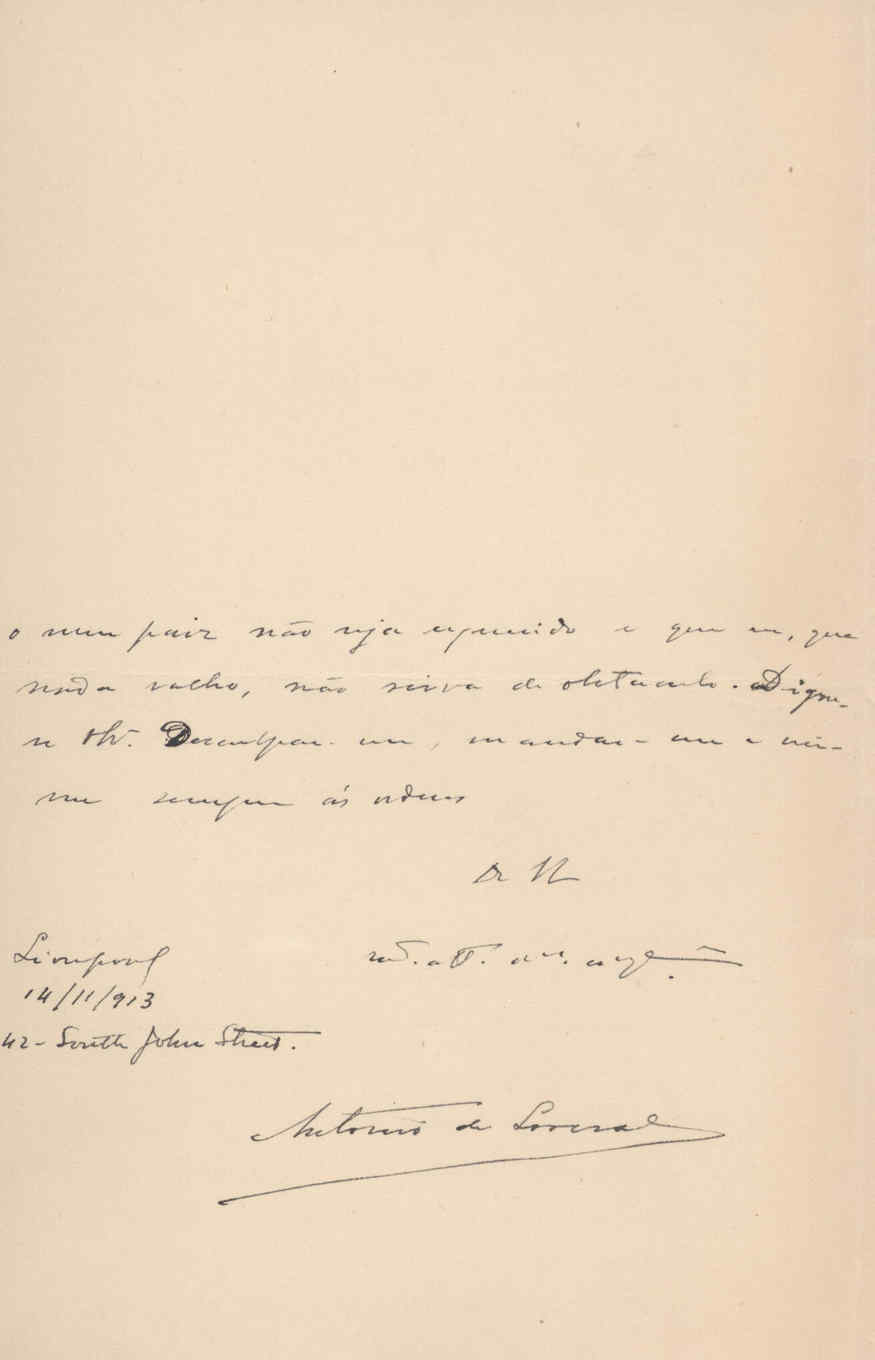 o meu paiz não seja esquecido e que eu, que
nada valho, não sirva de obstaculo. Digne-
se Desculpar-me, mandar-me e ver-
me sempre ás ordens
De V
Liverpool
14/11/913
42 - South John Street.
Antonio de